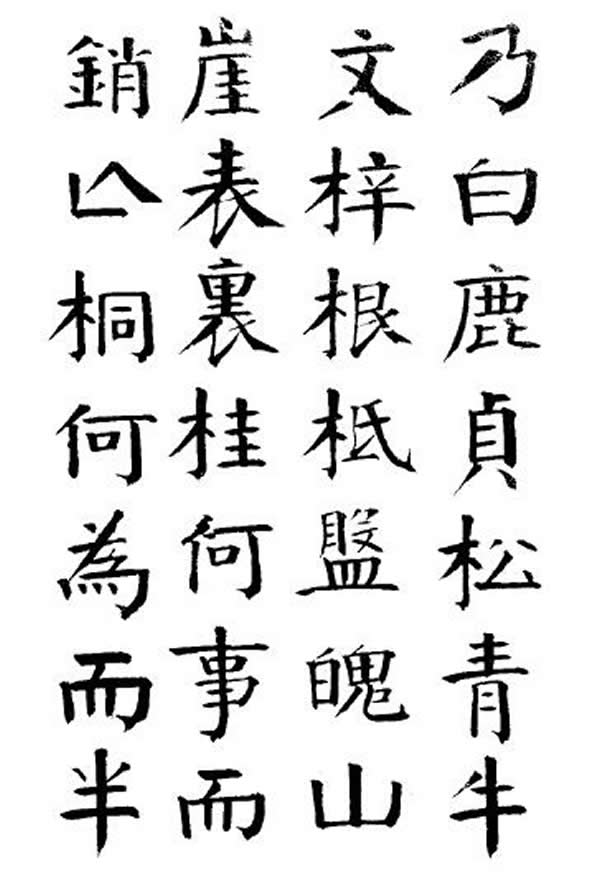 乃白鹿貞松青牛
文梓根柢盤魄山
崖表裏桂何事而
銷亾桐何為而半